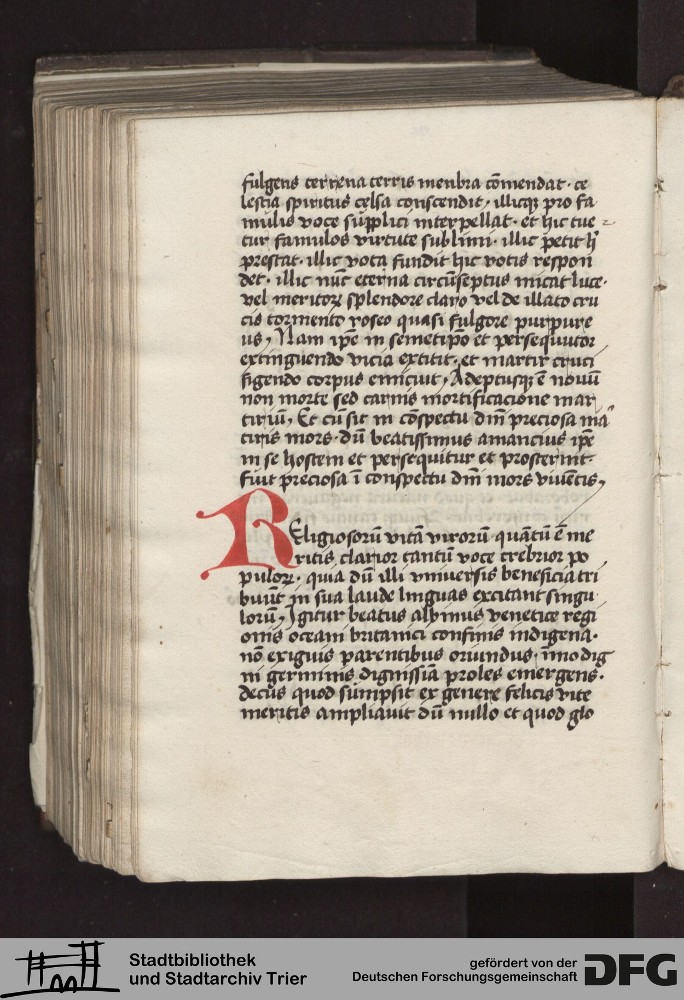 fulgens terrena terris menbra cōmendat · ce
lestia spiritus celsa conscendit, illicqꝫ pro fa
mulis voce supplici interpellat · et hic tue⸗
tur famulos virtute sublimi · illic petit h̅
prestat · illic vota fundit hic votis respon
det · illic nūc eterna circūseptus micat luce ·
vel meritoꝝ splendore claro vel de illato cru
cis tormento roseo quasi fulgore purpure
us, Nam ip̅e in semetip̅o et persequutor
extinguendo vicia extitit · et martir cruci
figendo corpus emicuit, Adeptusqꝫ ē nouū
non morte sed carnis mortificacione mar
tiriū, Et cū sit in cōspectu dn̅i preciosa ma
tiris mors · dū beatissimus amancius ip̅e
in se hostem et persequitur et prosternit ·
fiut preciosa ī conspectu dn̅i mors viuētis,
REligiosorū vitā virorū quātū ē me
ritis clarior tantū voce crebrior po
puloꝝ · quia dū illi vniuersis beneficia tri
buūt in sua laude linguas excitant singu
lorū, Igitur beatus albinus venetice regi
onis oceani britanici confinis indigena ·
nō exiguis parentibus oriundus · īmo dig
ni germinis dignissīa proles emergens ·
decus quod sūmpsit ex genere felicis vite
meritis ampliauit dū nullo et quod glo
Stadtbibliothek
und Stadtarchiv Trier
gefördert von der
Deutschen Forschungsgemeinschaft
DFG